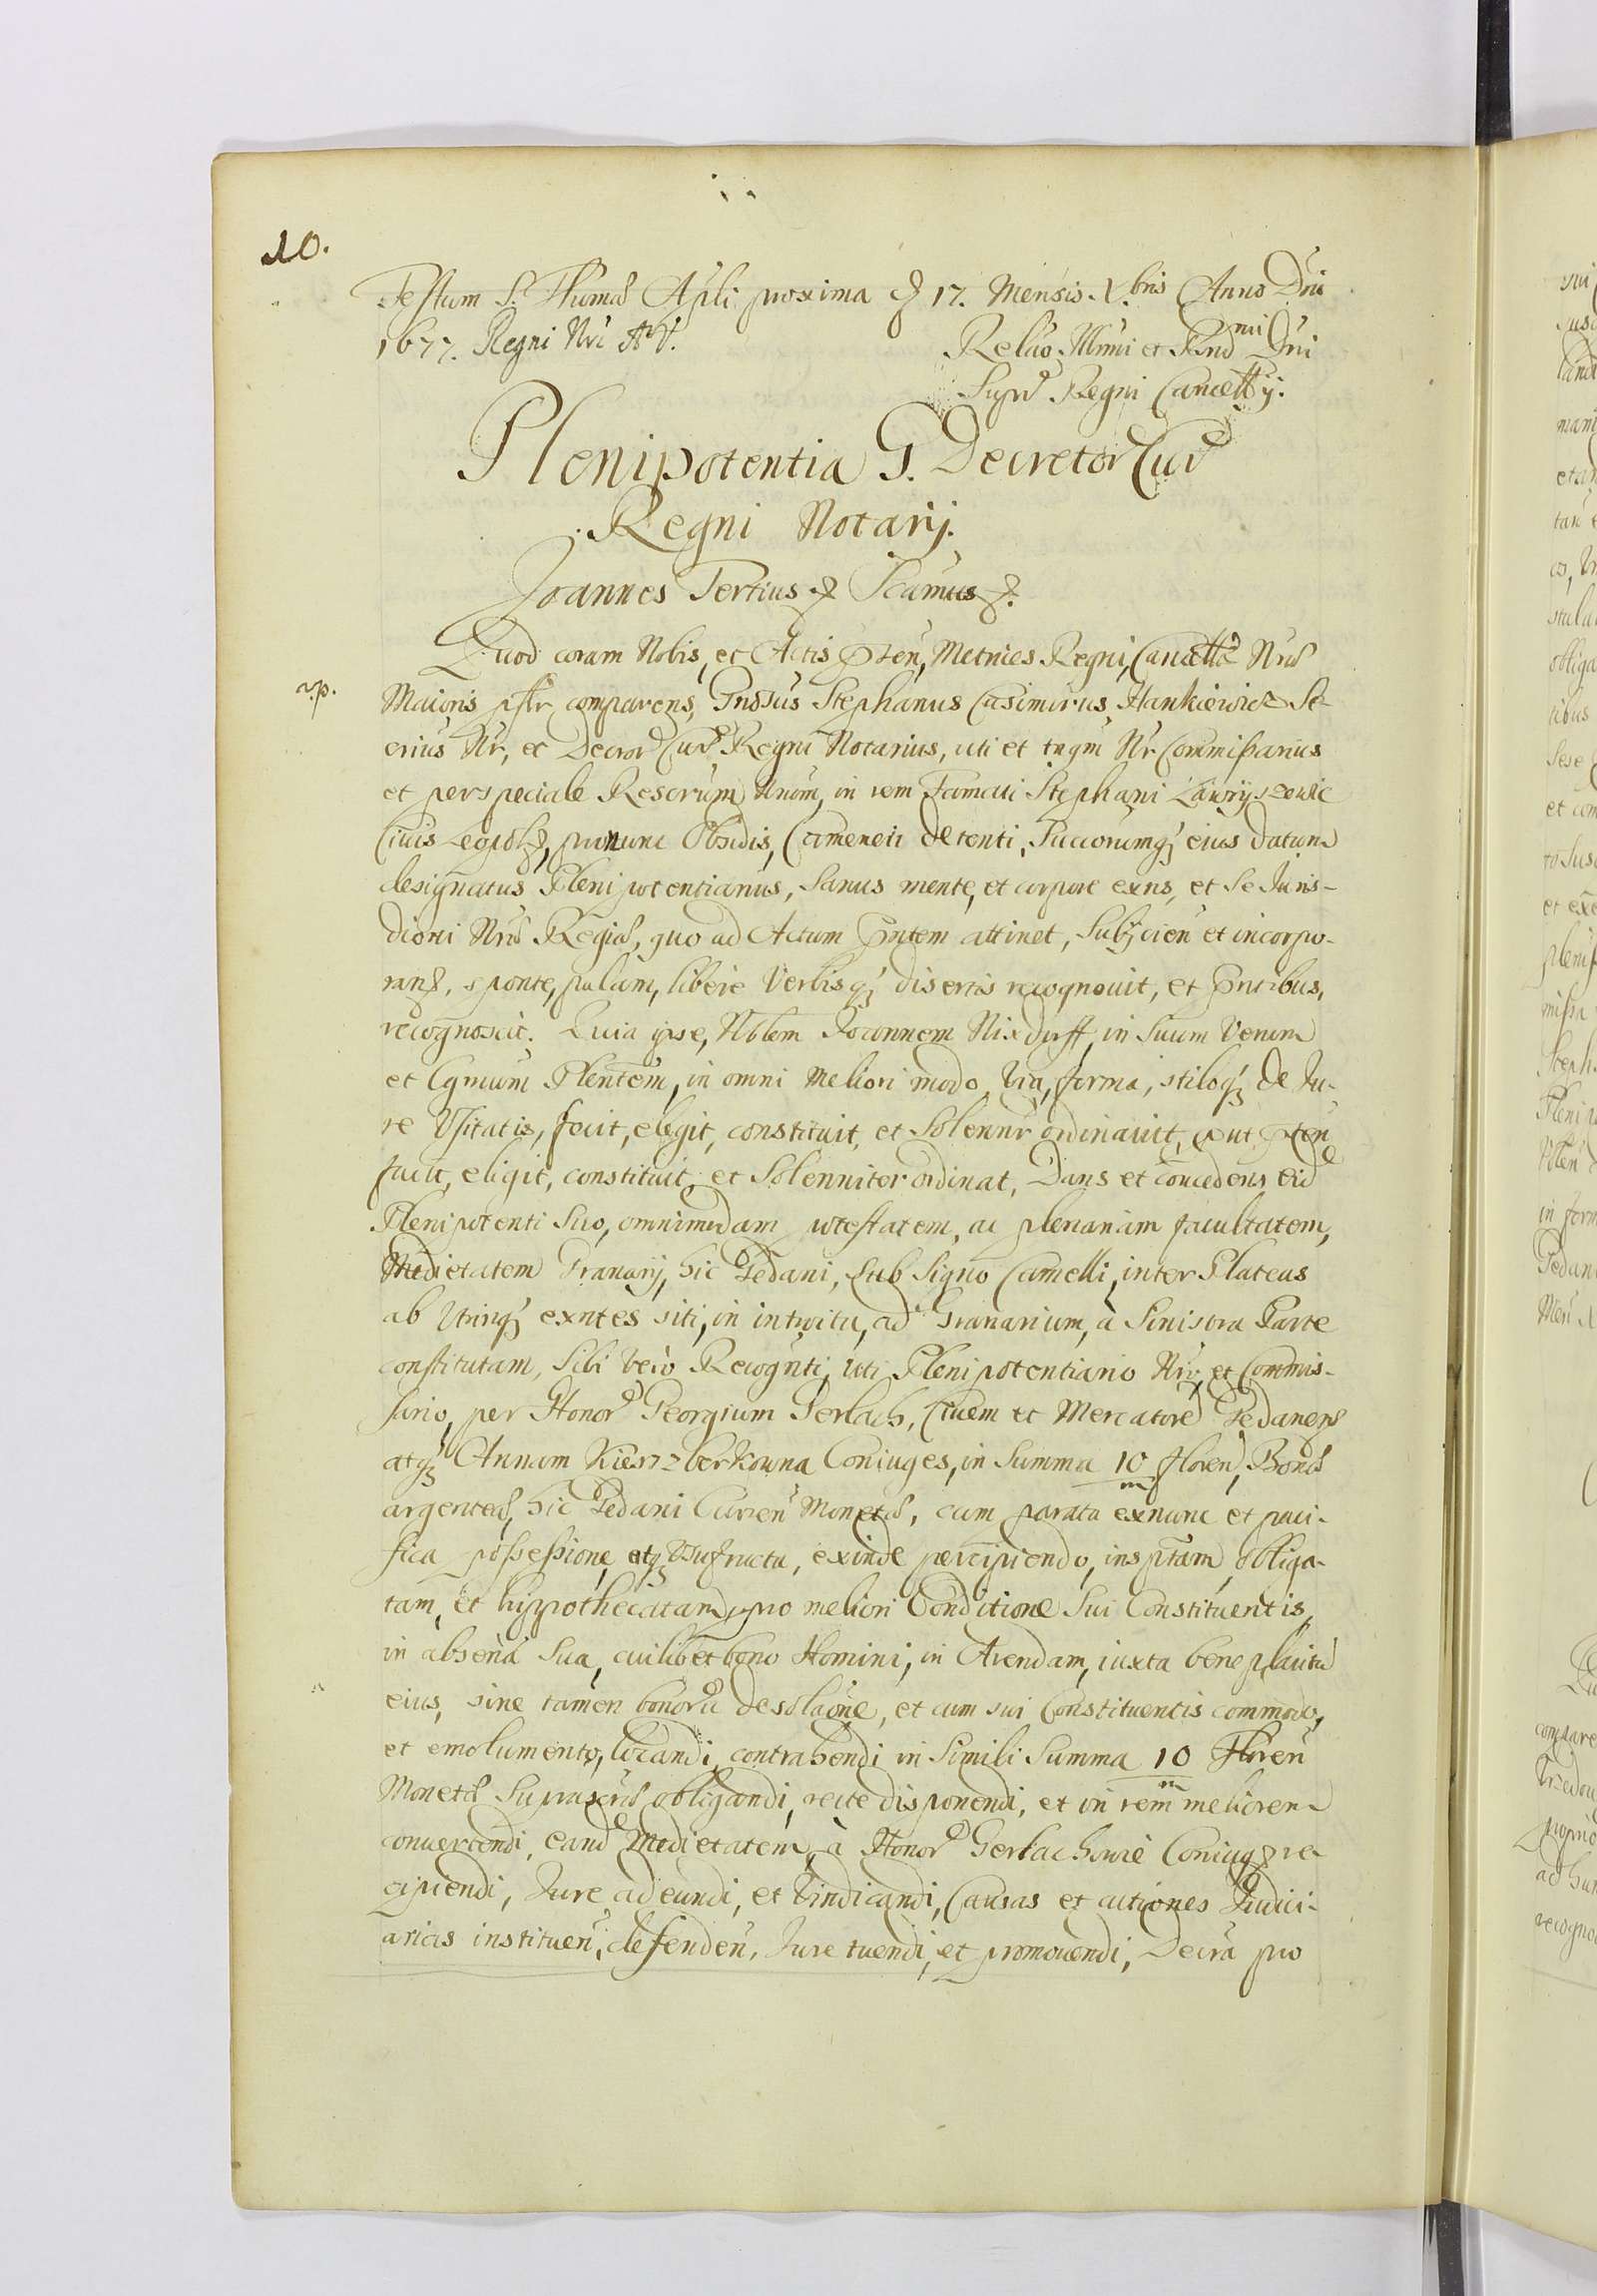 10.
Festum S. Thomæ Apli proxima 17. Mensis Xbris Anno Dni
1677. Regni Nri A° V.
Relao Illmi et Rndmi Dni
Supr Regni Cancellrij.
Plenipotentia G. Decretor Cur
Regni Notarij.
Joannes Tertius & Scamus &.
Quod coram Nobis, et Actis pten, Metrices Regni, Cancellæ Nræ
ap.
Maioris psltr comparens, Gnosus Stephanus Casimirus Hankiewicz Se-
crius Nr, et Decror Cur Regni Notarius, uti et tnqm Nr Commissarius
et per speciale Rescrum Nrum, in rem Famati Stephani Lawryszewic
Ciuis Leopol, pronunc Obsidis, Cameneci detenti, Succorumq eius datum
designatus Plenipotentiarius, Sanus mente, et corpore exns, et Se Juris-
dictni Nræ Regiæ, quo ad Actum Pntem attinet, Subijcien et incorpo-
rans, sponte, palam, libere Verbisq disertis recognouit, et Pntibus,
recognoscit. Quia ipse, Nblem Joannem Nixdorff, in Suum Verum
et Lgmum Plentem, in omni Meliori modo, Via, forma, stiloq de Ju-
re Vsitatis, fecit, elegit, constituit, et Solennr ordinauit, put pten
facit, eligit, constituit, et Solenniter ordinat, Dans et concedens eid
Plenipotenti Suo, omnimodam potestatem, ac plenariam facultatem,
Medietatem Granarij, hic Gedani, Sub Signo Camelli, inter Plateas
ab Vtrinq exntes siti, in introitu, ad Granarium, à Sinistra Parte
constitutam, Sibi vero Recognti, uti Plenipotentiario Nro, et Commis-
sario, per Honor Georgium Gerlach, Ciuem et Mercatore Gedanens
atq Annam Kierzberkowna Coniuges, in Summa 10 m floren, Bonæ
argenteæ, hic Gedani Curren Monetæ, cum parata exnunc et paci-
fica possessione, atq Vsufructu, exinde percipiendo, insptam obliga-
tam, et hypothecatam, pro meliori Conditione Sui Constituentis,
in absena Sua, cuilibet bono Homini, in Arendam, iuxta beneplacitu
eius, sine tamen bonoru desolaone, et cum sui Constituentis commodo,
et emolumento, locandi, contrahendi in Simili Summa 10 m Floren
Monetæ Suprascræ obligandi, recte disponendi, et in rem meliorem
conuertendi, eand Medietatem, à Honor Gerlachowie Coniug re-
cipiendi, Jure adeundi, et Vindicandi, Causas et actiones Iudici-
arias instituen, defenden, Jure tuendi, et promouendi, Decra pro